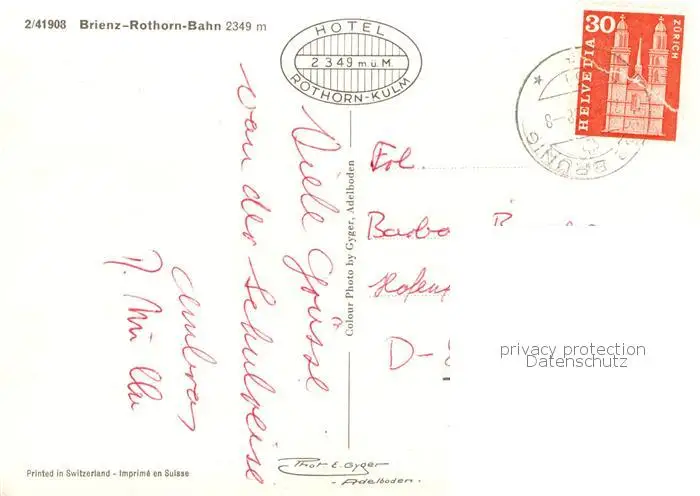 2/41908 Brienz-Rothorn-Bahn 2349 m
HOTEL
2349 m.ü.M.
ROTHORN-KULM
30
HELVETIA
ZÜRICH
BRÜNIG
Viele Grüsse
von der Schulreise
Frl.
D-
privacy protection
Datenschutz
Colour Photo by Gyger, Adelboden
Phot E. Gyger
- Adelboden.
Printed in Switzerland - Imprimé en Suisse